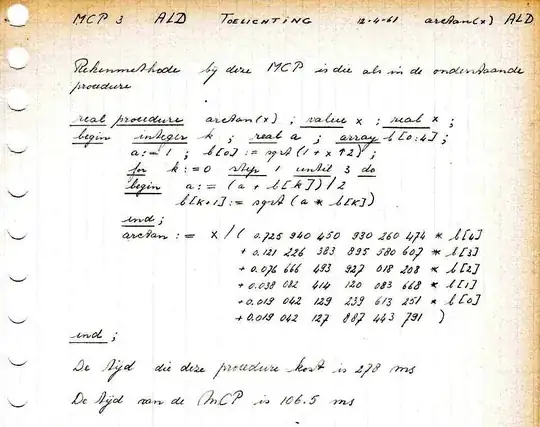 MCP 3 ALD TOELICHTING 12-4-61 arctan(x) ALD
Rekenmethode bij deze MCP is die als in de onderstaande
procedure
real procedure arctan(x) ; value x ; real x ;
begin integer k ; real a ; array b[0:4] ;
a := 1 ; b[0] := sqrt(1 + x↑2) ;
for k := 0 step 1 until 3 do
begin a := (a + b[k])/2
b[k+1] := sqrt(a * b[k])
end ;
arctan := x/( 0.725 940 450 930 260 474 * b[4]
+ 0.121 226 383 895 580 607 * b[3]
+ 0.076 666 493 927 018 208 * b[2]
+ 0.038 082 414 120 083 668 * b[1]
+ 0.019 042 129 239 613 251 * b[0]
+ 0.019 042 127 887 443 791 )
end ;
De tijd die deze procedure kost is 278 ms
De tijd van de MCP is 106.5 ms